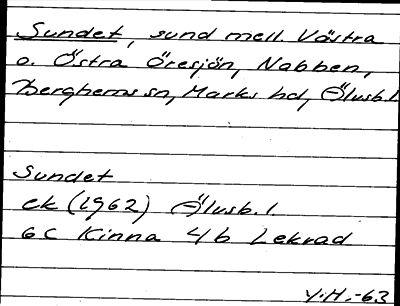 Sundet, sund mell. Västra
o. Östra Öresjön, Nabben,
Berghems sn, Marks hd, Älvsb.l
Sundet
ek (1962) Älvsb.l.
6C Kinna 4b Lekvad
Y.H.-63